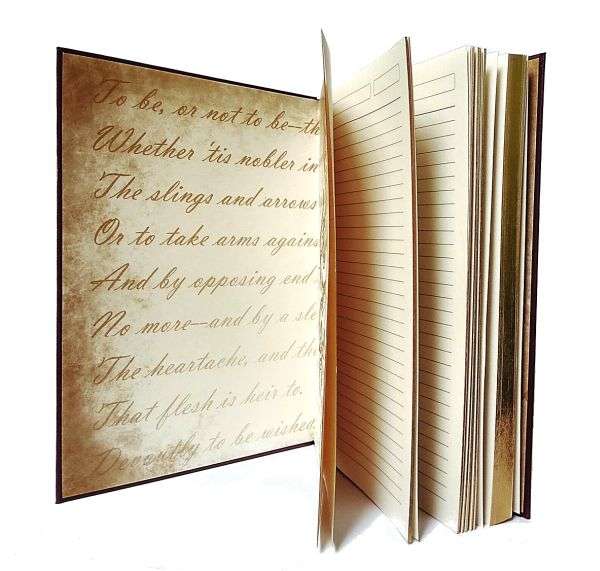 To be, or not to be—th
Whether 'tis nobler in
The slings and arrows
Or to take arms agains
And by opposing end
No more—and by a sle
The heartache, and th
That flesh is heir to.
Devoutly to be wished.